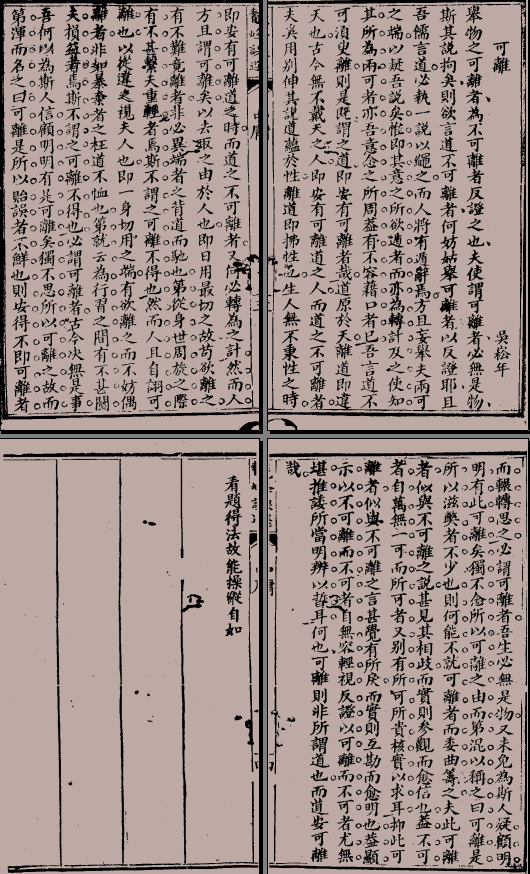 可離
吳崧年
舉物之可離者為不可離者反證之也夫使謂可離者必無是物
斯其說拘矣則欲言道不可離者何妨姑舉可離者以反證耶且
吾儒言道必執一說以繩之而人將有遁辭焉方且妄舉夫兩可
之端以疑吾說矣惟即其意之所欲遁者而亦為轉計及之使知
其所為兩可者亦吾意念之所周益有不容藉口者已吾言道不
可須臾離則是既謂之道即安有可離者哉道原於天離道即違
天也古今無不戴天之人即安有可離道之人而道之不可離者
夫奚用別伸其說道蘊於性離道即拂性也生人無不秉性之時
即安有可離道之時而道之不可離者又何必轉為之計然而人
方且謂可離矣以去取之由於人也即日用最切之故苟欲離之
有不難竟離者非必異端者之背道而馳也第從身世周旋之際
有不甚繫夫重輕者焉斯不謂之可離不得也然而人且自詡可
離也以從違之視夫人也即一身切用之端有欲離之而不妨偶
離者非如暴棄者之枉道不恤也第就云為行習之間有不甚關
夫損益者焉斯不謂之可離不得也必謂可離者古今決無是事
吾何以為斯人信顧明明有是可離矣獨不思所以可離之故而
第渾而名之曰可離是所以貽誤者不鮮也則安得不即可離者
而輾轉思之必謂可離者吾生必無是物又未免為斯人疑顧明
明有此可離矣獨不念所以可離之由而第混以稱之曰可離是
所以滋獘者不少也則何能不就可離者而委曲籌之夫此可離
者似與不可離之說甚見其相歧而實則參觀而愈信也蓋不可
者自萬無一可而所可者又別有所可所貴核實以求耳抑此可
離者似與不可離之言甚覺有所戾而實則互勘而愈明也蓋顯
示以不可離而不可者自無容輕視反證以可離而不可者尤無
堪推諉所當明辨以晢耳何也可離則非所謂道也而道安可離
哉
看題得法故能操縱自如